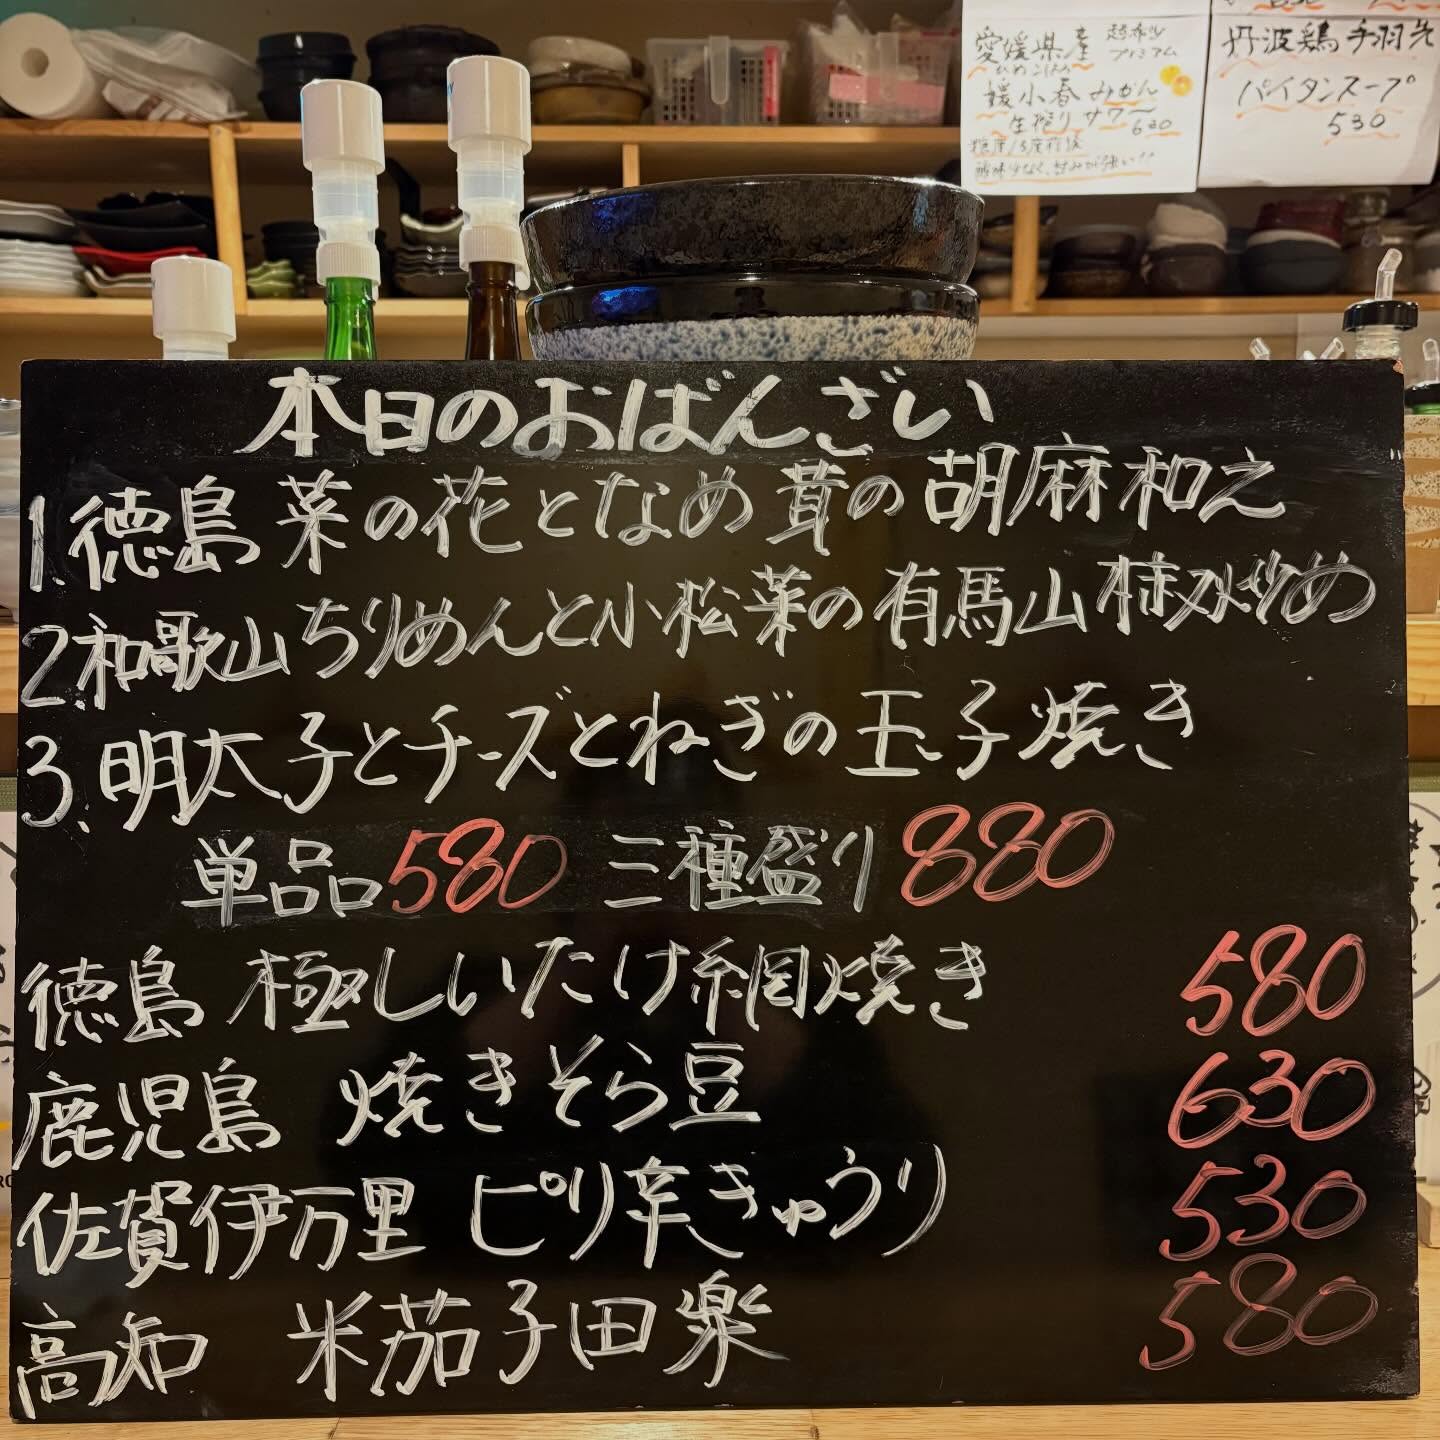 愛媛県産
プレミアム
媛小春みかん
生搾りサワー
630
丹波鶏手羽先
パイタンスープ
530
本日のおばんざい
1.徳島 菜の花となめ茸の胡麻和え
2.和歌山ちりめんと小松菜の有馬山椒炒め
3.明太子とチーズとねぎの玉子焼き
単品580 三種盛り880
徳島 極しいたけ網焼き 580
鹿児島 焼きそら豆 630
佐賀伊万里 ピリ辛きゅうり 530
高知 米茄子田楽 580